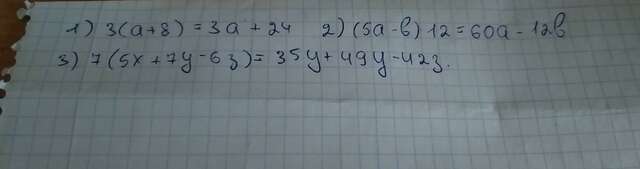 1) 3(a+8) = 3a + 24 2) (5a-b) 12 = 60a - 12b
3) 7(5x+7y-6z) = 35y + 49y - 42z.